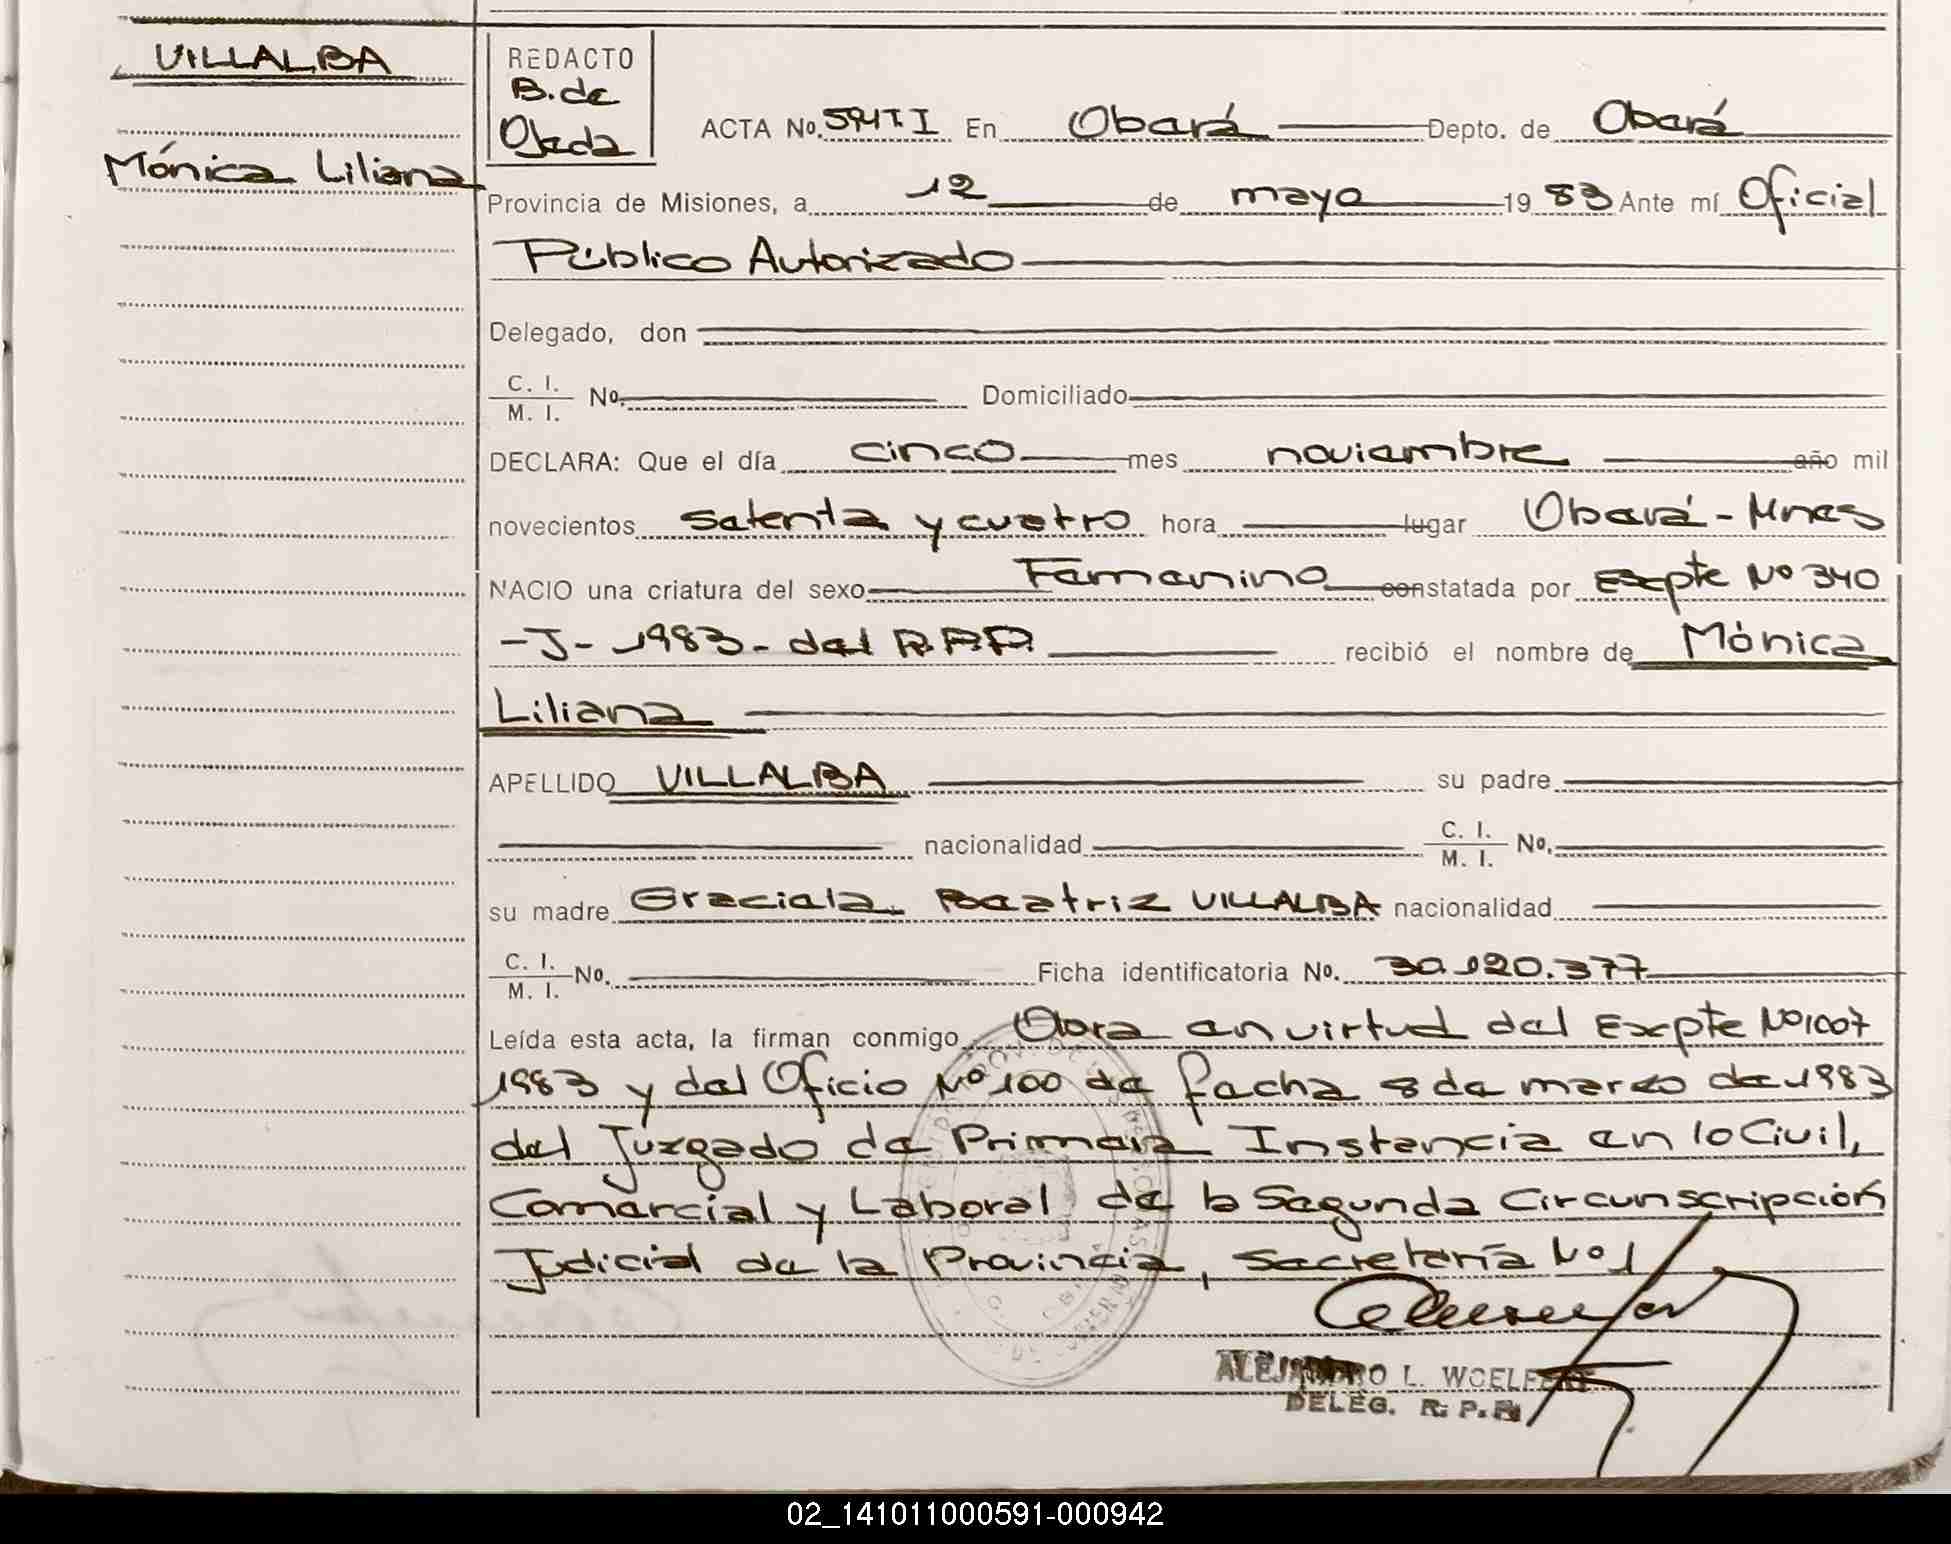 VILLALBA
Mónica Liliana
REDACTO
B. de
Ojeda
ACTA No. 594 T. I En Oberá Depto. de Oberá
Provincia de Misiones, a 12 de mayo 1983 Ante mí Oficial
Público Autorizado
Delegado, don
C. I.
M. I. No. Domiciliado
DECLARA: Que el día cinco mes noviembre año mil
novecientos setenta y cuatro hora lugar Oberá - Mnes
NACIO una criatura del sexo Femenino constatada por Expte Nº 340
-J- 1983- del R.P.P. recibió el nombre de Mónica
Liliana
APELLIDO VILLALBA su padre
nacionalidad C. I.
M. I. No.
su madre Graciela Beatriz VILLALBA nacionalidad
C. I.
M. I. No. Ficha identificatoria No. 30.120.377
Leída esta acta, la firman conmigo Obra en virtud del Expte Nº 1007
1983 y del Oficio Nº 100 de fecha 8 de marzo de 1983
del Juzgado de Primera Instancia en lo Civil,
Comercial y Laboral de la Segunda Circunscripción
Judicial de la Provincia, Secretaría Nº 1
ALEJANDRO L. WOELFERT
DELEG. R. P. P.
02_141011000591-000942